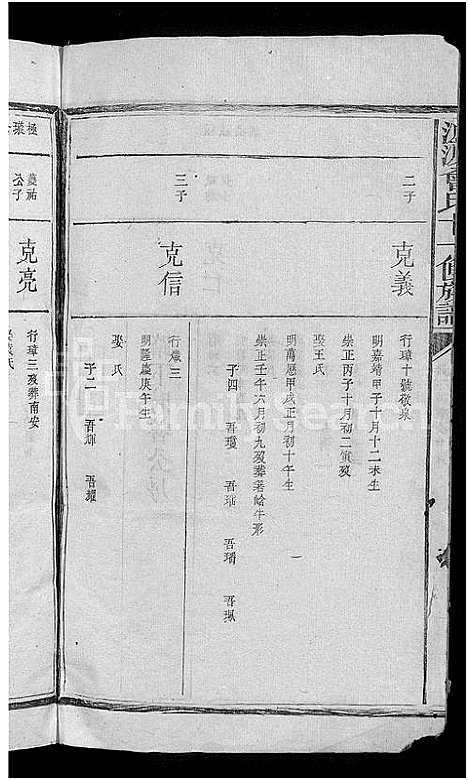 曾氏十一修族譜
二子
克義
行璋十號敬泉
明嘉靖甲子十月十二未生
崇正丙子十月初二寅歿
娶王氏
明萬歷甲戌正月初十午生
崇正壬午六月初九歿葬著峆牛形
子四 吾瓊 吾璀 吾璠 吾珮
三子
克信
行熾三
明隆慶庚午生
娶 氏
子二 吾輝 吾耀
極 璇
蔓祐公子
克亮
行璋三歿葬南安
FamilySearch